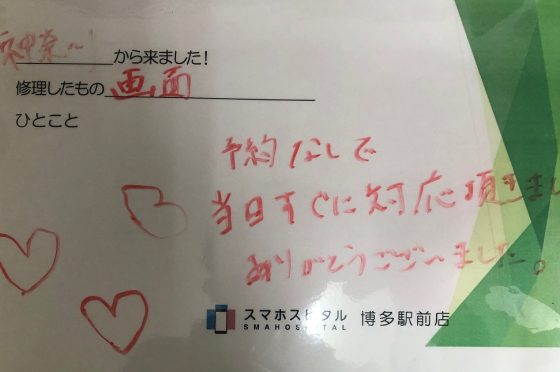 神奈川から来ました!
修理したもの 画面
ひとこと
予約なしで
当日すぐに対応頂きまし
ありがとうございました。
スマホスピタル 博多駅前店
SMAHOSPITAL